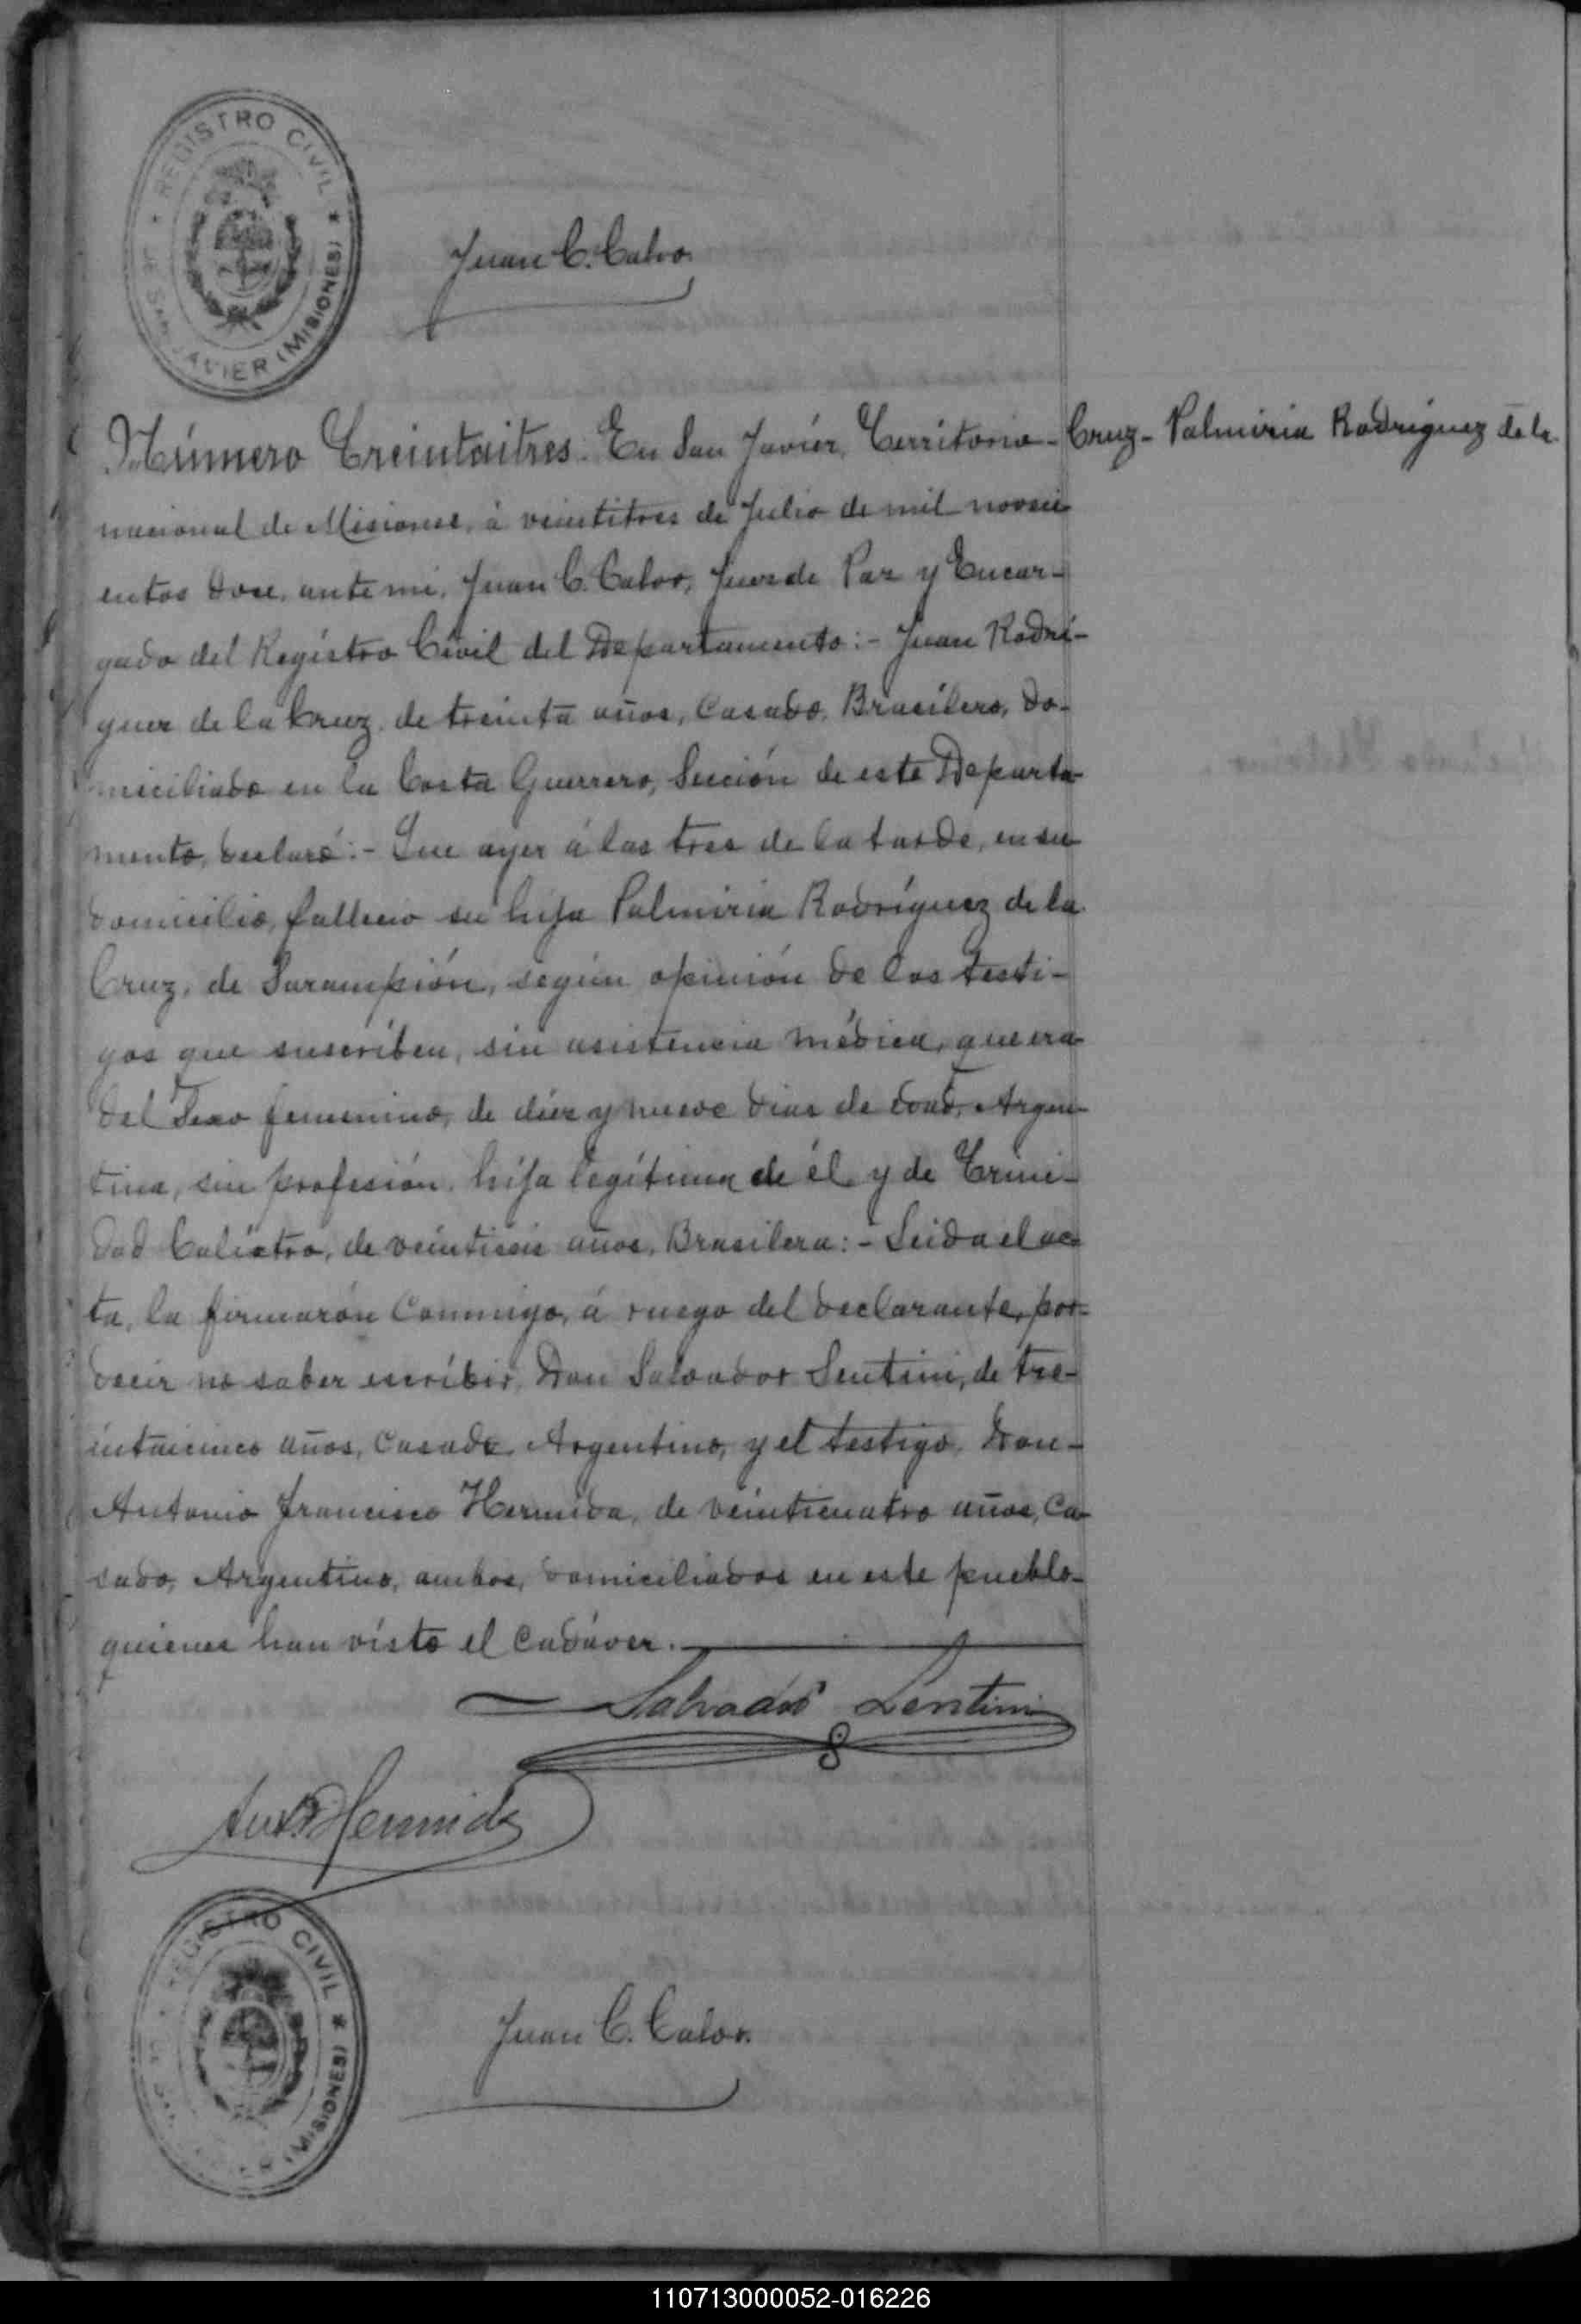 REGISTRO CIVIL
DE SAN JAVIER (MISIONES)
Juan C. Calvo
Número Treintaitres. En San Javier, Territorio - Cruz - Palmiria Rodriguez de la
nacional de Misiones, á veintitres de Julio de mil noveci
entos doce, ante mi, Juan C. Calvo, Juez de Paz y Encar-
gado del Registro Civil del Departamento: - Juan Rodri-
guez de la Cruz, de treinta años, Casado, Brasilero, do-
miciliado en la Costa Guerrero, Sección de este Departa-
mento, declaró: - Que ayer á las tres de la tarde, en su
domicilio, falleció su hija Palmiria Rodríguez de la
Cruz, de Sarampión, según opinión de los testi-
gos que suscriben, sin asistencia médica, que era
del Sexo femenino, de diez y nueve dias de edad, Argen-
tina, sin profesión, hija legítima de él y de Trini-
dad Calistro, de veintiseis años, Brasilera: - Leida el ac-
ta, la firmarón Conmigo, á ruego del declarante, por-
decir no saber escribir, Don Salvador Lentini, de tre-
intaicinco años, Casado, Argentino, y el testigo, Don -
Antonio Francisco Hermida, de veinticuatro años, Ca-
sado, Argentino, ambos, domiciliados en este pueblo -
quienes han visto el Cadáver.
Salvador Lentini
Ant. F. Hermida
REGISTRO CIVIL
(MISIONES)
Juan C. Calvo
110713000052-016226